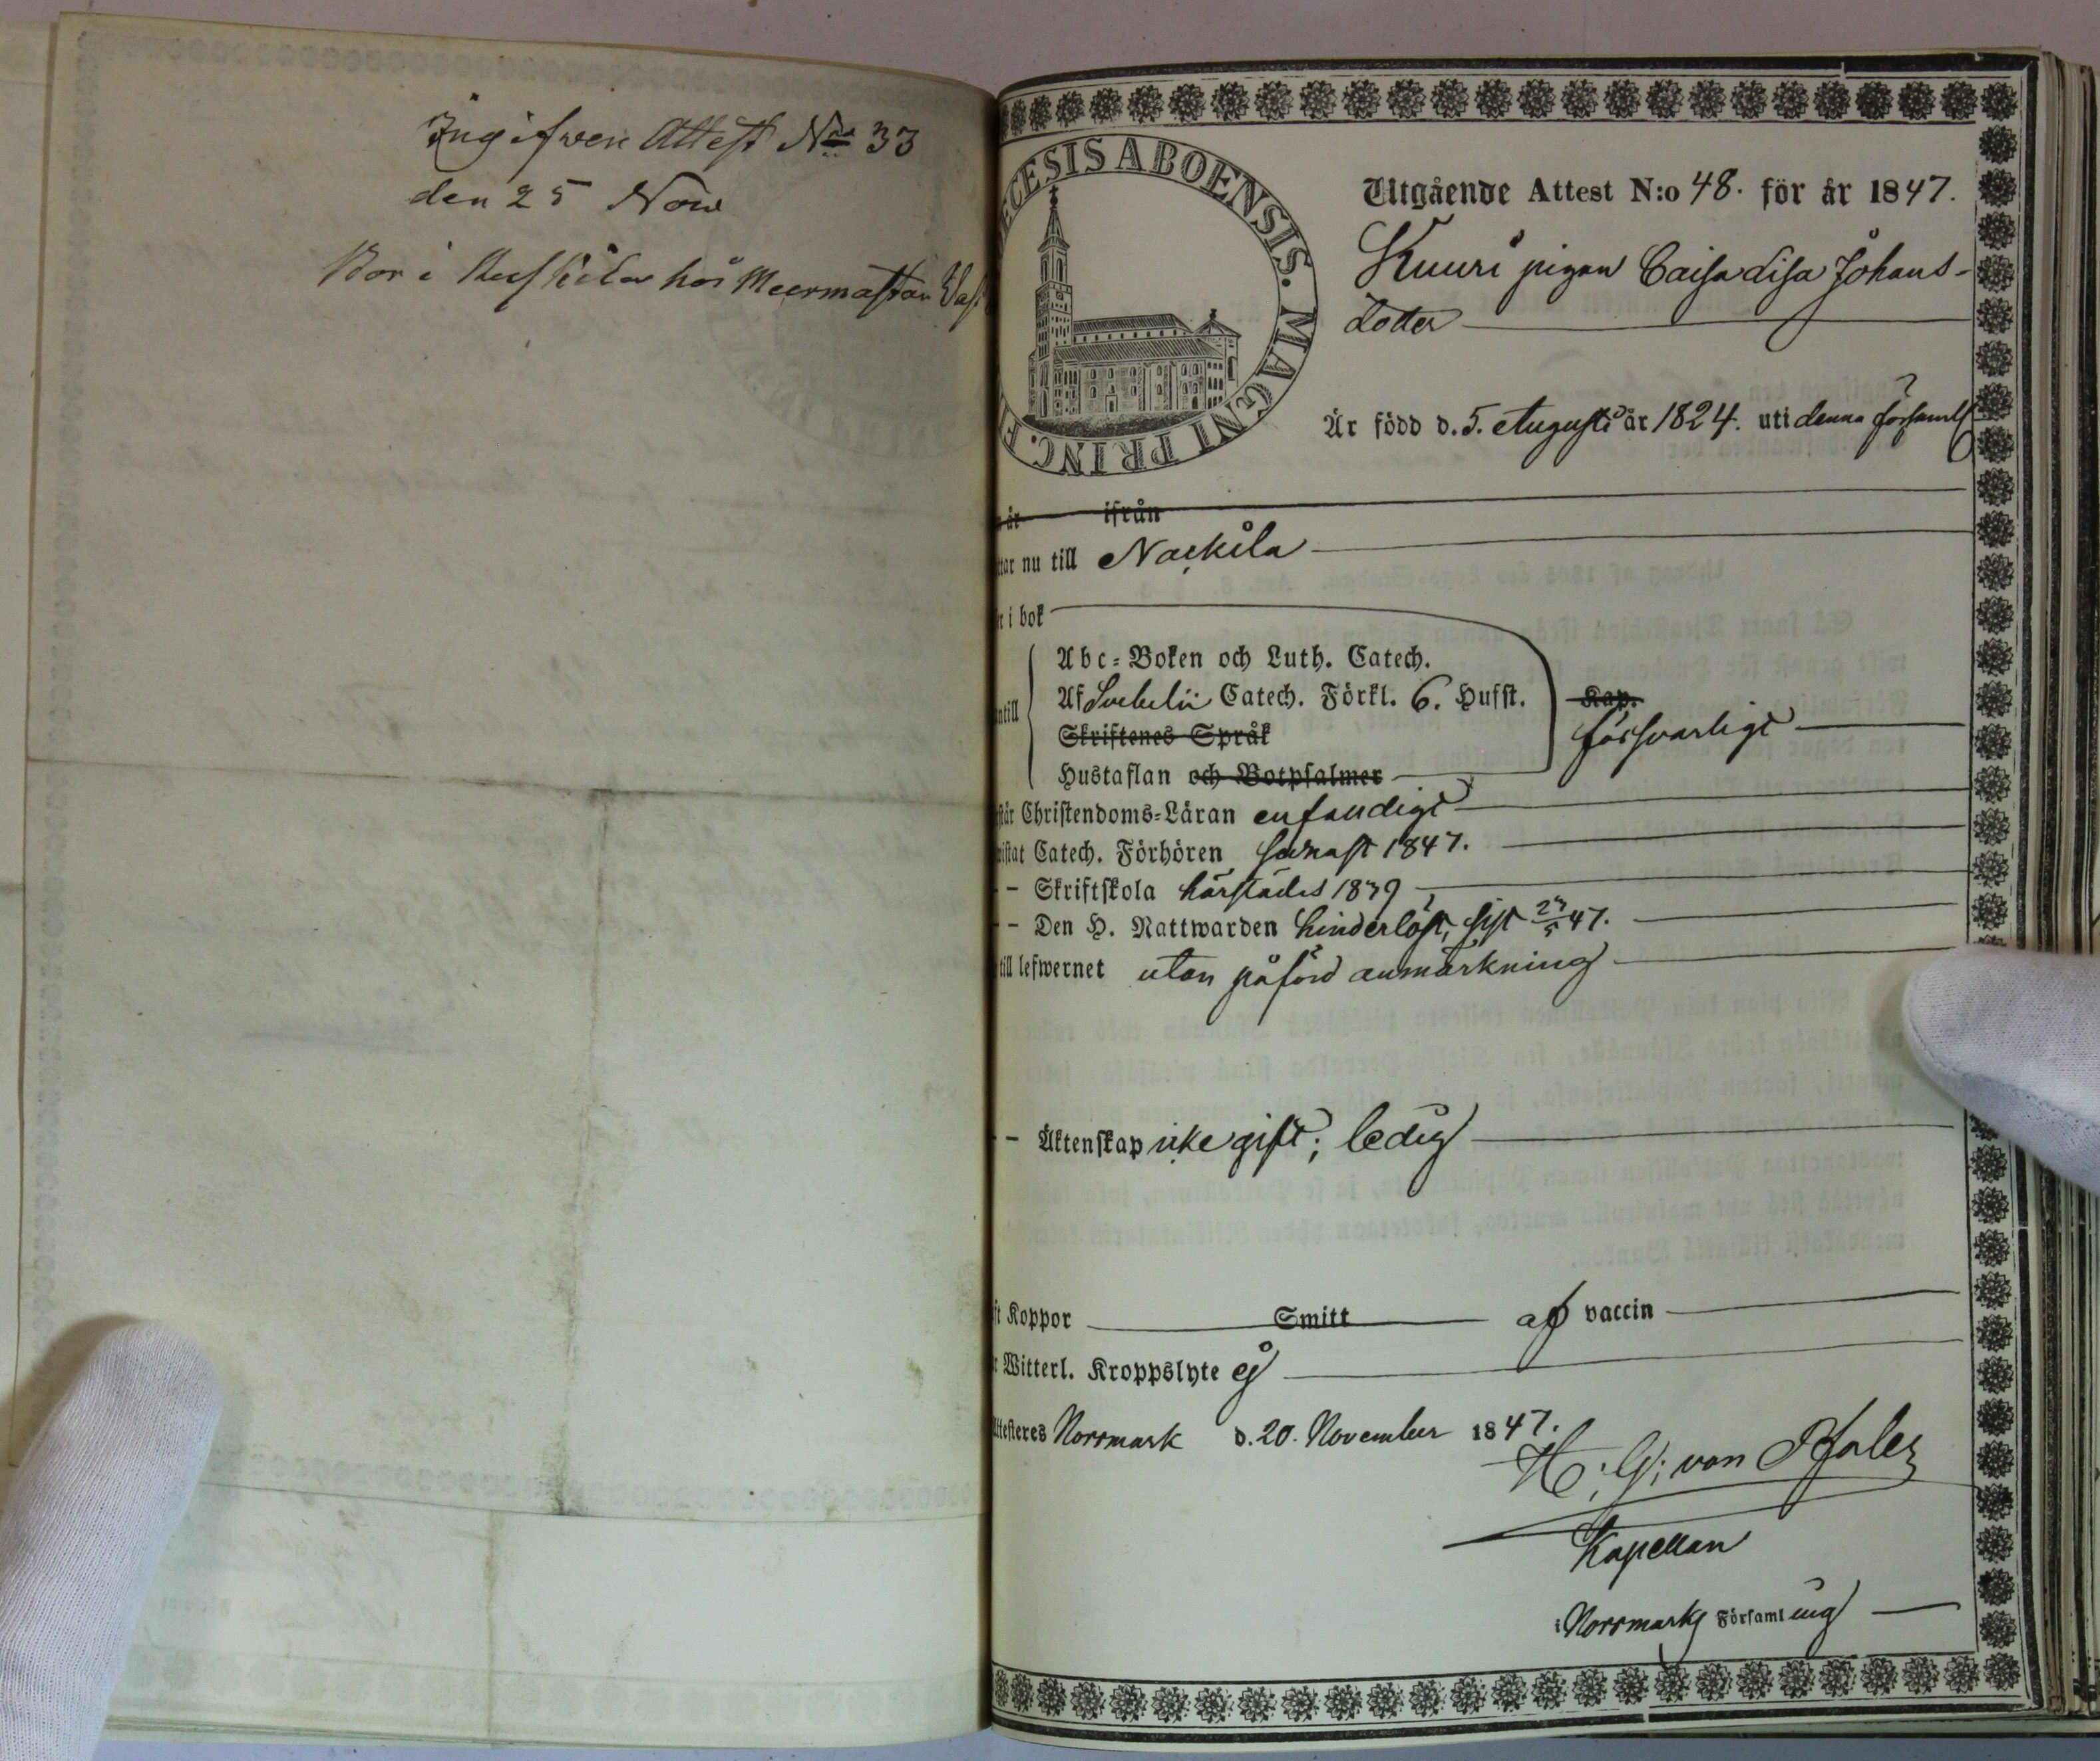 Ingifven Attest No 33
den 25 Nov
Bor i hos
DIOECESIS ABOENSIS. MAGNI PRINC. F
Utgående Attest N:o 48. för år 1847.
Kuuri pigan Caisa Lisa Johans-
dotter
Är född d. 5. Augusti år 1824. uti denna församl
år ifrån
ttar nu till Nackila
i bok
Abc-Boken och Luth. Catech.
Af Svebelii Catech. Förkl. 6. Hufst.
Kap.
ntill
Skriftenes Språk
försvarligt
Hustaflan och Botpsalmer
står Christendoms-Läran enfaldigt
istat Catech. Förhören senast 1847.
- Skriftskola härstädes 1839
- Den H. Nattwarden hinderlöst, sist 23/5 47.
till lefwernet utan påförd anmärkning
- Äktenskap icke gift; ledig
ft Koppor Smitt af vaccin
Witterl. Kroppslyte ej
Attesteres Norrmark d. 20. November 1847.
H: G: von Pfaler
Kapellan
i Norrmarks Församling